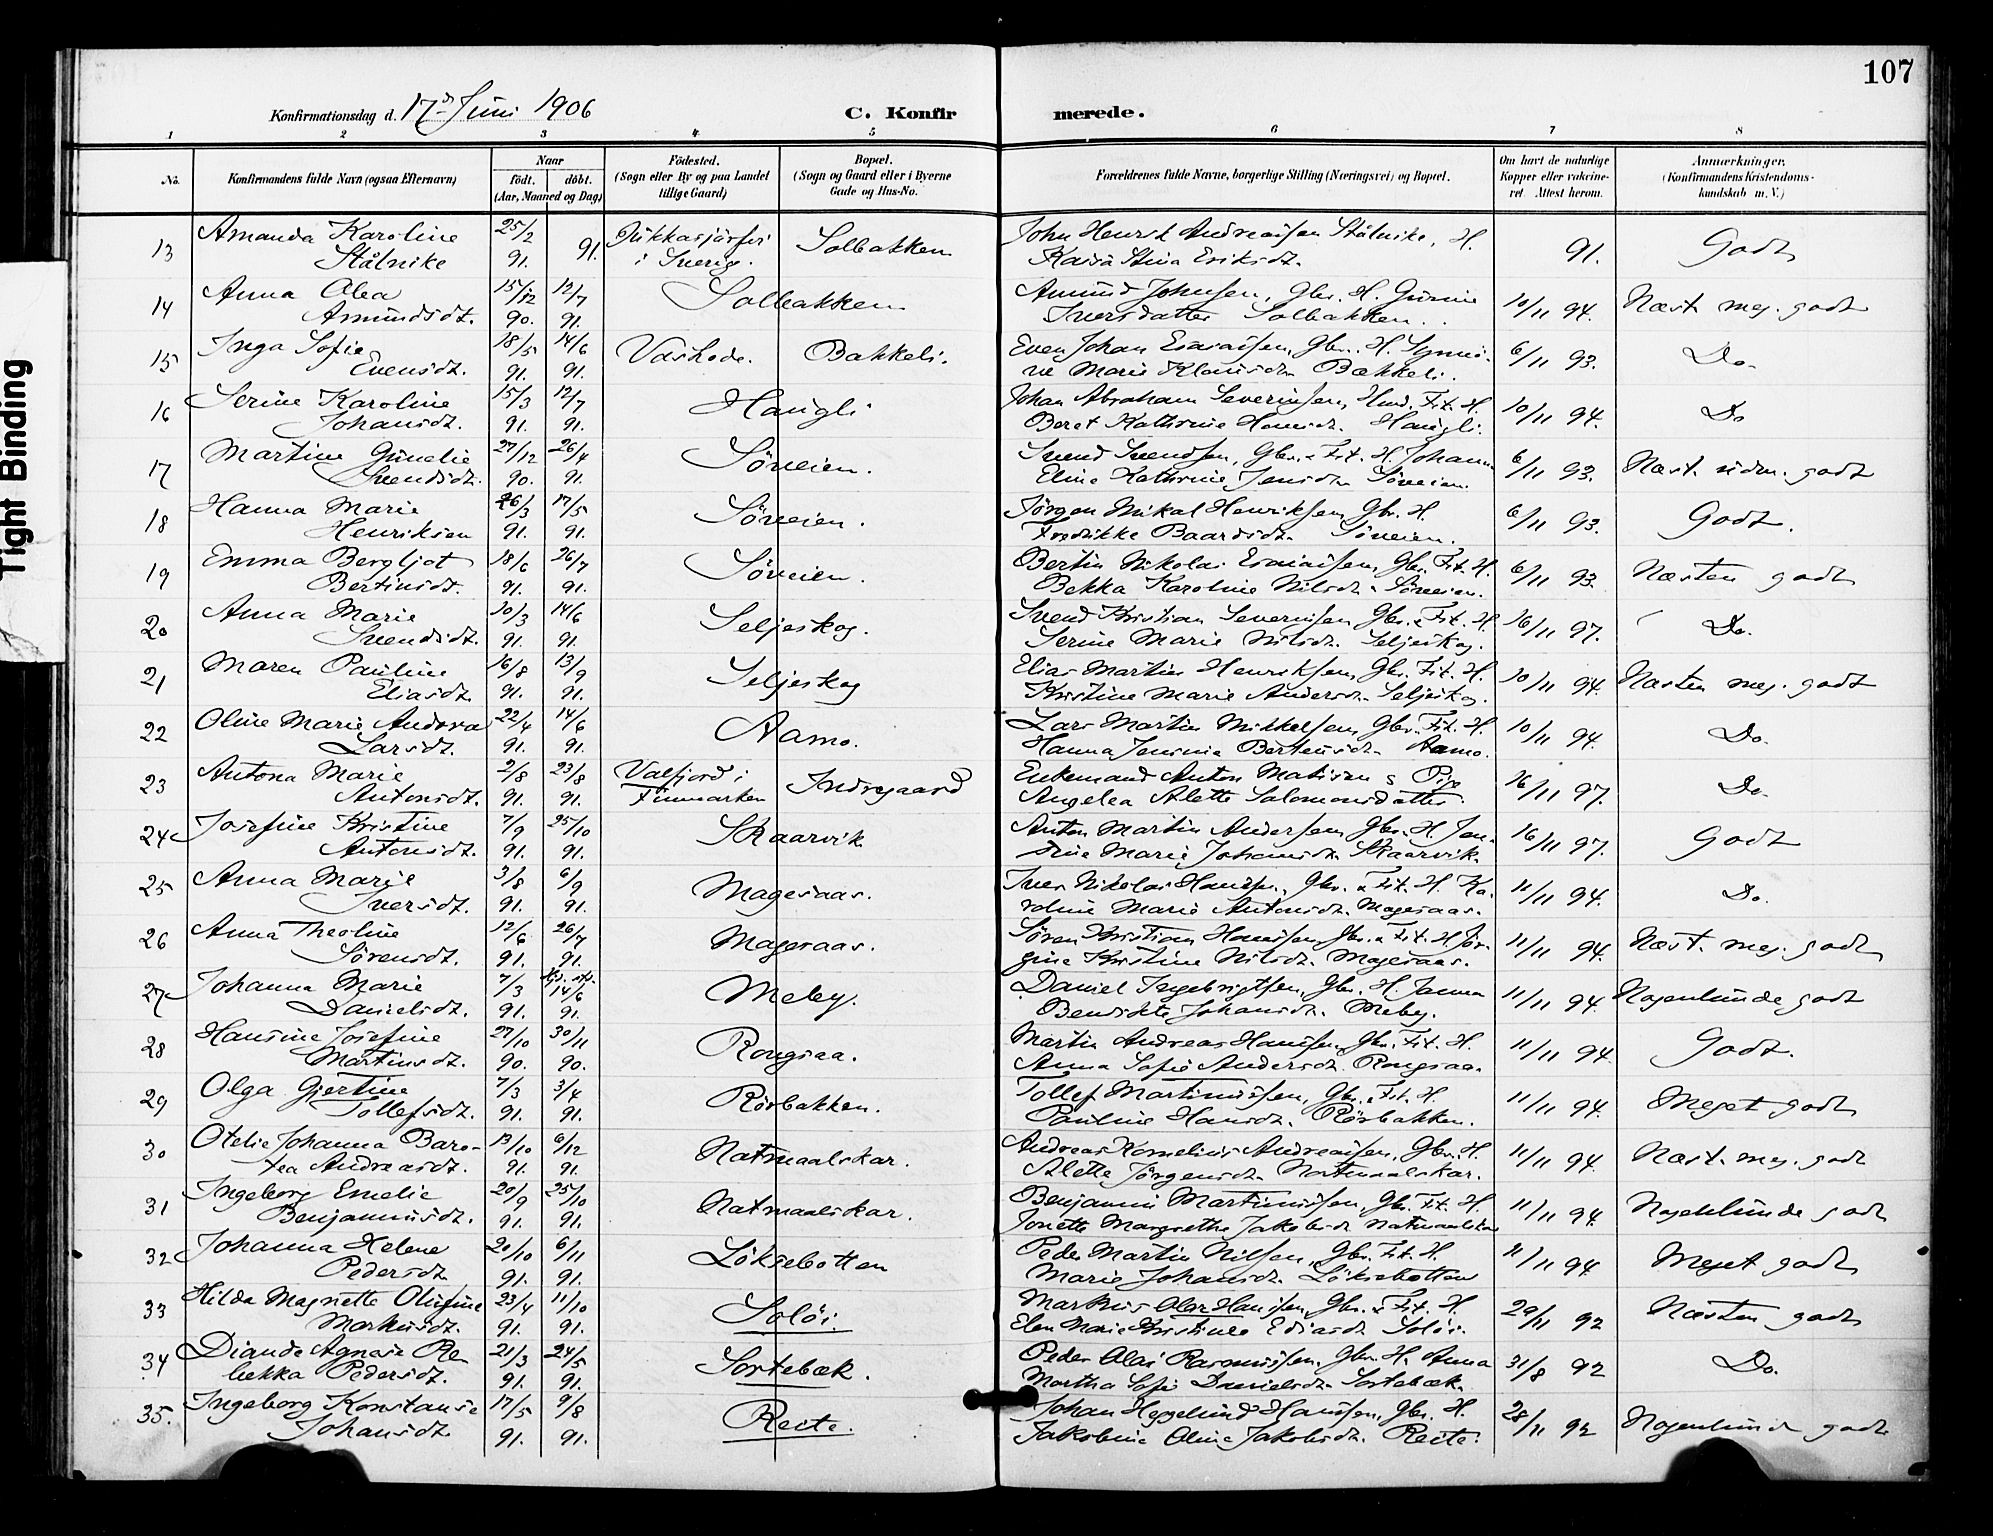 107
Tight Binding
Konfirmationsdag d. 17de Juni 1906
C. Konfirmerede.
1 2 3 4 5 6 7 8
No. Konfirmandens fulde Navn (ogsaa Efternavn) Naar født. døbt. (Aar, Maaned og Dag) Fødested. (Sogn eller By og paa Landet tillige Gaard) Bopæl. (Sogn og Gaard eller i Byerne Gade og Hus-No. Forældrenes fulde Navne, borgerlige Stilling (Næringsvei) og Bopæl. Om havt de naturlige Kopper eller vakcineret. Attest herom. Anmærkninger. (Konfirmandens Kristendomskundskab m. V.)
13 Amanda Karoline 25/2 Jukkasjärfvi Solbakken John Henrik Andreassen Stålnike, H. 91. Godt
Stålnike 91. 91. i Sverig. Kaisa Stina Eriksdt.
14 Anna Olea 15/12 12/7 Solbakken Amund Johnsen, Gbr. H. Gurine 10/11 94. Næst. meg. godt
Amundsdt. 90. 91. Iversdatter Solbakken.
15 Inga Sofie 18/5 14/6 Vashode. Bakkeli. Even Johan Esaiassen, Gbr. H. 6/11 93. Do.
Evensdt. 91. 91. Marie Klausdt. Bakkeli.
16 Serine Karoline 15/3 12/7 Haugli Johan Abraham Severinsen, Hmd. Fit. H. 10/11 94. Do
Johansdt. 91. 91. Beret Kathrine Hansdt. Haugli.
17 Martine Gunelie 27/12 26/4 Sørreien. Svend Svendsen, Gbr. & Fit. H. Johanna 6/11 93. Næst. godt
Svendsdt. 90. 91. Eline Kathrine Jensdt. Sørreien.
18 Hanna Marie 26/3 17/5 Sørreien. Jørgen Mikal Henriksen, Gbr. H. 6/11 93. Godt.
Henriksen 91. 91. Fredrikke Baardsdt. Sørreien.
19 Emma Bergljot 18/6 26/7 Sørreien. Bertin Nikolai Esaiassen, Gbr. Fit. H. 6/11 93. Næsten godt
Bertinsdt. 91. 91. Bekka Karoline Nilsdt. Sørreien.
20 Anna Marie 30/3 14/6 Seljeskog. Svend Kristian Severinsen Gbr. & Fit. H. 16/11 97. Do.
Svendsdt. 91. 91. Serine Marie Nilsdt. Seljeskog.
21 Maren Pauline 16/8 13/9 Seljeskog Elias Martin Henriksen, Gbr. Fit. H. 10/11 94. Næsten meg. godt
Eliasdt. 91. 91. Kristine Marie Andersdt. Seljeskog.
22 Oline Marie Andrea 22/4 14/6 Aamo. Lars Martin Mikkelsen, Gbr. Fit. H. 10/11 94. Do.
Larsdt. 91. 91. Hanna Jensine Berteusdt. Aamo.
23 Antona Marie 2/8 23/8 Valfjord i Indregaard Enkemand Anton Matisen & Pige 16/11 97. Do.
Antonsdt. 91. 91. Finmarken Angelea Alette Salomonsdatter.
24 Josefine Kristine 7/9 25/10 Skaarvik Anton Martin Andersen, Gbr. H. Jen- 16/11 97. Godt
Antonsdt. 91. 91. sine Marie Johansdt. Skaarvik.
25 Anna Marie 3/8 6/9 Mageraas. Iver Nikolai Hansen, Gbr. & Fit. H. Ka- 11/11 94. Do.
Iversdt. 91. 91. roline Marie Antonsdt. Mageraas.
26 Anna Theoline 12/6 26/7 Mageraas. Søren Kristian Hansen, Gbr. & Fit. H. Jør- 11/11 94. Næst. meg. godt
Sørensdt. 91. 91. gine Kristine Nilsdt. Mageraas.
27 Johanna Marie 7/3 14/6 Meby. Daniel Ingebrigtsen, Gbr. H. Janna 11/11 94. Nogenlunde godt
Danielsdt. 91. 91. Bendikte Johansdt. Meby.
28 Hansine Josefine 27/10 30/11 Rongsaa. Martin Andreas Hansen, Gbr. Fit. H. 11/11 94. Godt.
Martinsdt. 90. 90. Anna Sofie Andersdt. Rongsaa.
29 Olga Gjertine 7/3 3/4 Rørbakken. Tollef Martinussen, Gbr. & Fit. H. 11/11 94. Meget godt
Tollefsdt. 91. 91. Pauline Hansdt. Rørbakken.
30 Otelie Johanna Baro- 13/10 6/12 Natmaalskar. Andreas Kornelius Andreassen, Gbr. H. 11/11 94. Næst. meg. godt
tea Andreasdt. 91. 91. Alette Jørgensdt. Natmaalskar.
31 Ingeborg Emelie 20/9 25/10 Natmaalskar. Benjamin Martinussen, Gbr. Fit. H. 11/11 94. Nogenlunde godt
Benjaminsdt. 91. 91. Jonette Margrethe Jakobsdt. Natmaalskar
32 Johanna Helene 20/10 6/11 Løksebotten Peder Martin Nilsen, Gbr. Fit. H. 11/11 94. Meget godt
Pedersdt. 91. 91. Marie Johansdt. Løksebotten
33 Hilda Magnette Olufine 23/4 11/10 Soløi. Markus Olai Hansen, Gbr. & Fit. H. 29/11 92 Næsten godt
Markusdt. 91. 91. Elen Marie Kristine Ediasdt. Soløi.
34 Diande Agnass Re- 21/3 24/5 Sortebæk. Peder Olai Rasmussen, Gbr. H. Anna 31/8 92 Do.
bekka Pedersdt. 91. 91. Martha Sofie Danielsdt. Sortebæk.
35. Ingeborg Konstanse 17/5 9/8 Reite. Johan Heggelund Hansen, Gbr. H. 28/11 92 Nogenlund godt
Johansdt. 91. 91. Jakobine Oline Jakobsdt. Reite.